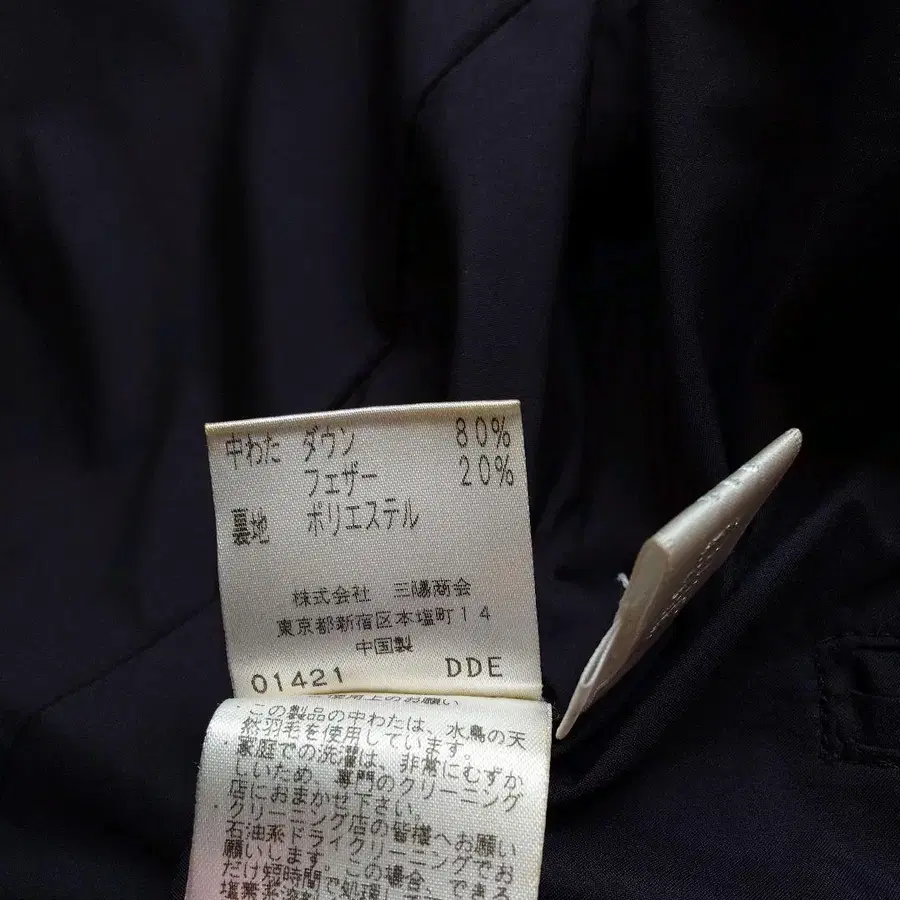 中わた ダウン 80%
フェザー 20%
裏地 ポリエステル
株式会社 三陽商会
東京都新宿区本塩町14
中国製
01421 DDE
使用上のお願い
・この製品の中わたは、水鳥の天
然羽毛を使用しています。
・家庭での洗濯は、非常にむずか
しいため、専門のクリーニング
店におまかせ下さい。
・クリーニング店の皆様へお願い
石油系ドライクリーニングでお
願いします。この場合、できる
だけ短時間で処理し
塩素系溶剤